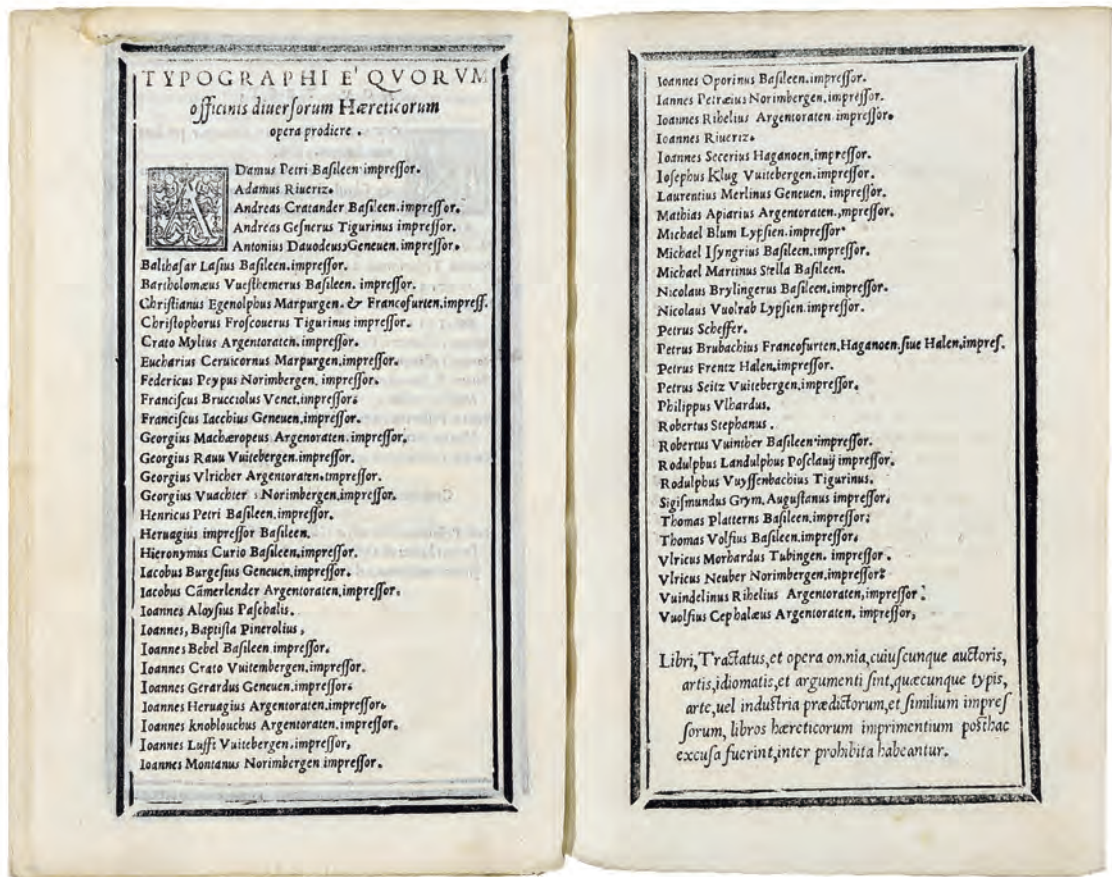 TYPOGRAPHI E' QVORVM
officinis diuerſorum Hæreticorum
opera prodiere .
ADamus Petri Baſileen impreſſor.
Adamus Riueriz.
Andreas Cratander Baſileen.impreſſor.
Andreas Geſnerus Tigurinus impreſſor.
Antonius Dauodeus,Geneuen.impreſſor.
Balthaſar Laſius Baſileen.impreſſor.
Bartholomæus Vueſthemerus Baſileen. impreſſor.
Chriſtianus Egenolphus Marpurgen. & Francofurten,impreſſ.
Chriſtophorus Froſcouerus Tigurinus impreſſor.
Crato Mylius Argentoraten.impreſſor.
Eucharius Ceruicornus Marpurgen.impreſſor.
Federicus Peypus Norimbergen. impreſſor.
Franciſcus Brucciolus Venet.impreſſor.
Franciſcus Iacchius Geneuen.impreſſor.
Georgius Machæropeus Argenoraten.impreſſor.
Georgius Rauu Vuitebergen.impreſſor.
Georgius Vlricher Argentoraten.impreſſor.
Georgius Vuachter Norimbergen.impreſſor.
Henricus Petri Baſileen.impreſſor.
Heruagius impreſſor Baſileen.
Hieronymus Curio Baſileen.impreſſor.
Iacobus Burgeſius Geneuen.impreſſor.
Iacobus Cämerlender Argentoraten.impreſſor.
Ioannes Aloyſius Paſchalis.
Ioannes, Baptiſta Pinerolius,
Ioannes Bebel Baſileen impreſſor.
Ioannes Crato Vuitembergen.impreſſor.
Ioannes Gerardus Geneuen.impreſſor.
Ioannes Heruagius Argentoraten.impreſſor.
Ioannes knoblouchus Argentoraten.impreſſor.
Ioannes Lufft Vuitebergen.impreſſor,
Ioannes Montanus Norimbergen impreſſor.
Ioannes Oporinus Baſileen.impreſſor.
Iannes Petræius Norimbergen.impreſſor.
Ioannes Ribelius Argentoraten.impreſſor.
Ioannes Riueriz.
Ioannes Secerius Haganoen.impreſſor.
Ioſephus Klug Vuitebergen.impreſſor.
Laurentius Merlinus Geneuen. impreſſor.
Mathias Apiarius Argentoraten.,mpreſſor.
Michael Blum Lypſien.impreſſor
Michael Iſyngrius Baſileen.impreſſor.
Michael Martinus Stella Baſileen.
Nicolaus Brylingerus Baſileen.impreſſor.
Nicolaus Vuolrab Lypſien.impreſſor.
Petrus Scheffer.
Petrus Brubachius Francofurten.Haganoen.ſiue Halen,impreſ.
Petrus Frentz Halen.impreſſor.
Petrus Seitz Vuitebergen,impreſſor.
Philippus Vlhardus.
Robertus Stephanus .
Robertus Vuinther Baſileen impreſſor.
Rodulphus Landulphus Poſclauij impreſſor.
Rodulphus Vuyſſenbachius Tigurinus.
Sigiſmundus Grym. Auguſtanus impreſſor.
Thomas Platterns Baſileen.impreſſor.
Thomas Volfius Baſileen.impreſſor.
Vlricus Morhardus Tubingen. impreſſor .
Vlricus Neuber Norimbergen.impreſſor.
Vuindelinus Ribelius Argentoraten,impreſſor.
Vuolfius Cephalæus Argentoraten. impreſſor,
Libri,Tractatus,et opera on.nia,cuiuſcunque auctoris,
artis,idiomatis,et argumenti ſint,quæcunque typis,
arte,uel induſtria prædictorum,et ſimilium impreſ
ſorum, libros hæreticorum imprimentium poſthac
excuſa fuerint,inter prohibita habeantur.